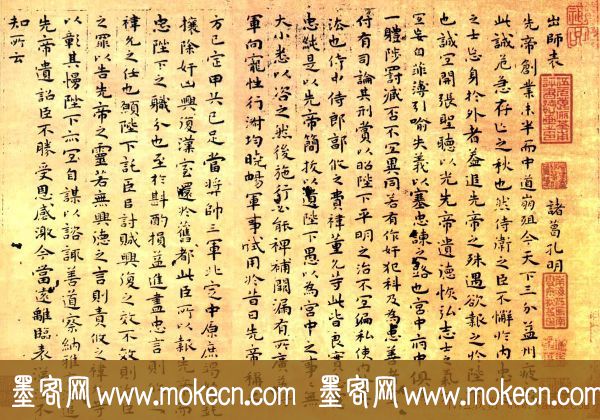 出師表
諸葛孔明
先帝創業未半而中道崩殂今天下三分益州疲
此誠危急存亡之秋也然侍衛之臣不懈於內忠
之士忘身於外者蓋追先帝之殊遇欲報之於陛
也誠宜開張聖聽以光先帝遺德恢弘志士之氣
宜妄自菲薄引喻失義以塞忠諫之路也宮中府中俱
一體陟罰臧否不宜異同若有作奸犯科及為忠善
付有司論其刑賞以昭陛下平明之治不宜偏私使內
法也侍中侍郎郭攸之費禕董允等此皆良實
忠純是以先帝簡拔以遺陛下愚以為宮中之事事無
大小悉以咨之然後施行必能裨補闕漏有所廣益
軍向寵性行淑均曉暢軍事試用於昔日先帝稱
方已定甲兵已足當獎帥三軍北定中原庶竭
攘除奸凶興復漢室還於舊都此臣所以報先帝而
忠陛下之職分也至於斟酌損益進盡忠言則攸
禕允之任也願陛下託臣以討賊興復之效不效則
之罪以告先帝之靈若無興德之言則責攸之禕等
以彰其慢陛下亦宜自謀以諮諏善道察納雅言追
先帝遺詔臣不勝受恩感激今當遠離臨表
知所云
墨客网 www.mokecn.com 墨客网 www.mokecn.com